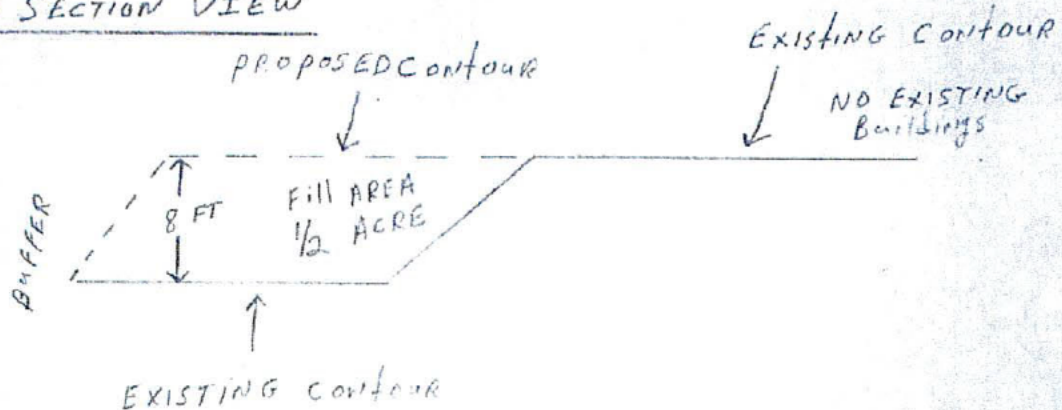 SECTION VIEW
PROPOSED Contour
EXISTING Contour
NO EXISTING
Buildings
8 FT
Fill AREA
1/2 ACRE
BUFFER
EXISTING Contour